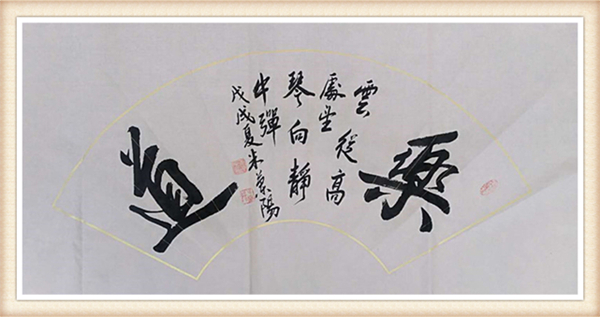 樂
道
雲從高
處望
琴向靜
中彈
戊戌夏朱陽